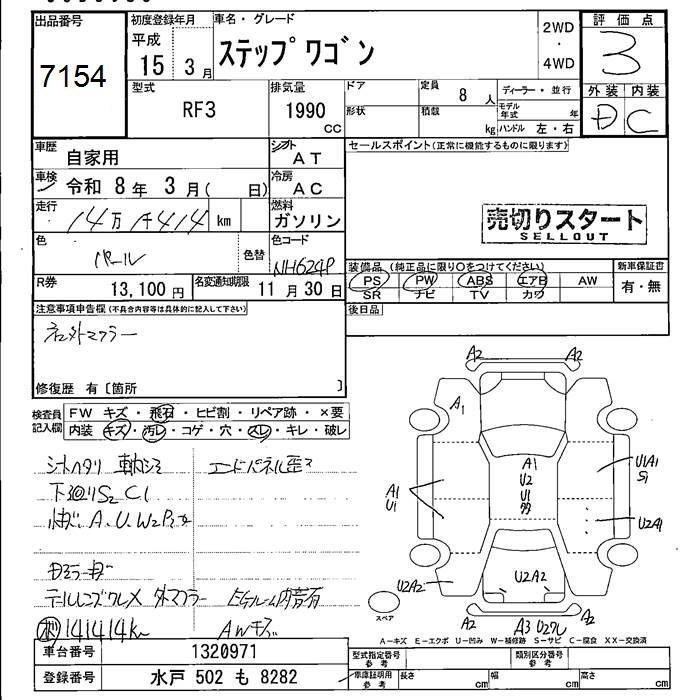 出品番号 初度登録年月 車名・グレード 2WD 評価点
7154 平成 ステップワゴン ・ 3
15 3月 4WD
型式 排気量 ドア 定員 ディーラー・並行 外装 内装
RF3 1990 CC 形状 積載 8人 モデル年式 年 D C
kg ハンドル 左・右
車歴 自家用 シフト AT セールスポイント(正常に機能するものに限ります)
車検 令和 8年 3月( 日) 冷房 AC
走行 14万1千414 km 燃料 ガソリン 売切りスタート
SELLOUT
色 パール 色替 色コード NH624P
装備品 (純正品に限り〇をつけてください) 新車保証書
R券 13,100円 名変通知期限 11月30日 PS PW ABS エアB AW 有・無
SR ナビ TV カワ
注意事項申告欄(不具合内容等は具体的に記入して下さい) 後日品
社外マフラー
修復歴 有〔箇所 〕
検査員記入欄 FW キズ・飛石・ヒビ割・リペア跡・×要
内装 キズ・汚レ・コゲ・穴・スレ・キレ・破レ
シートヘタリ エンドパネル歪
下廻りS2 C1
A.U.W2
テールレンズワレ× 外マフラー
141414K AWキズ
A2 A2
A1
A1 U1
A1
U2
U1
U1A1
S1
U2A1
U2A2 U2A2
A2 A2
スペア A3 U2ワレ
A-キズ E-エクボ U-凹み W-補修跡 S-サビ C-腐食 XX-交換済
車台番号 1320971 型式指定番号 参考 類別区分番号 参考
登録番号 水戸 502 も 8282 車庫証明用 参考 長さ cm 幅 cm 高さ cm